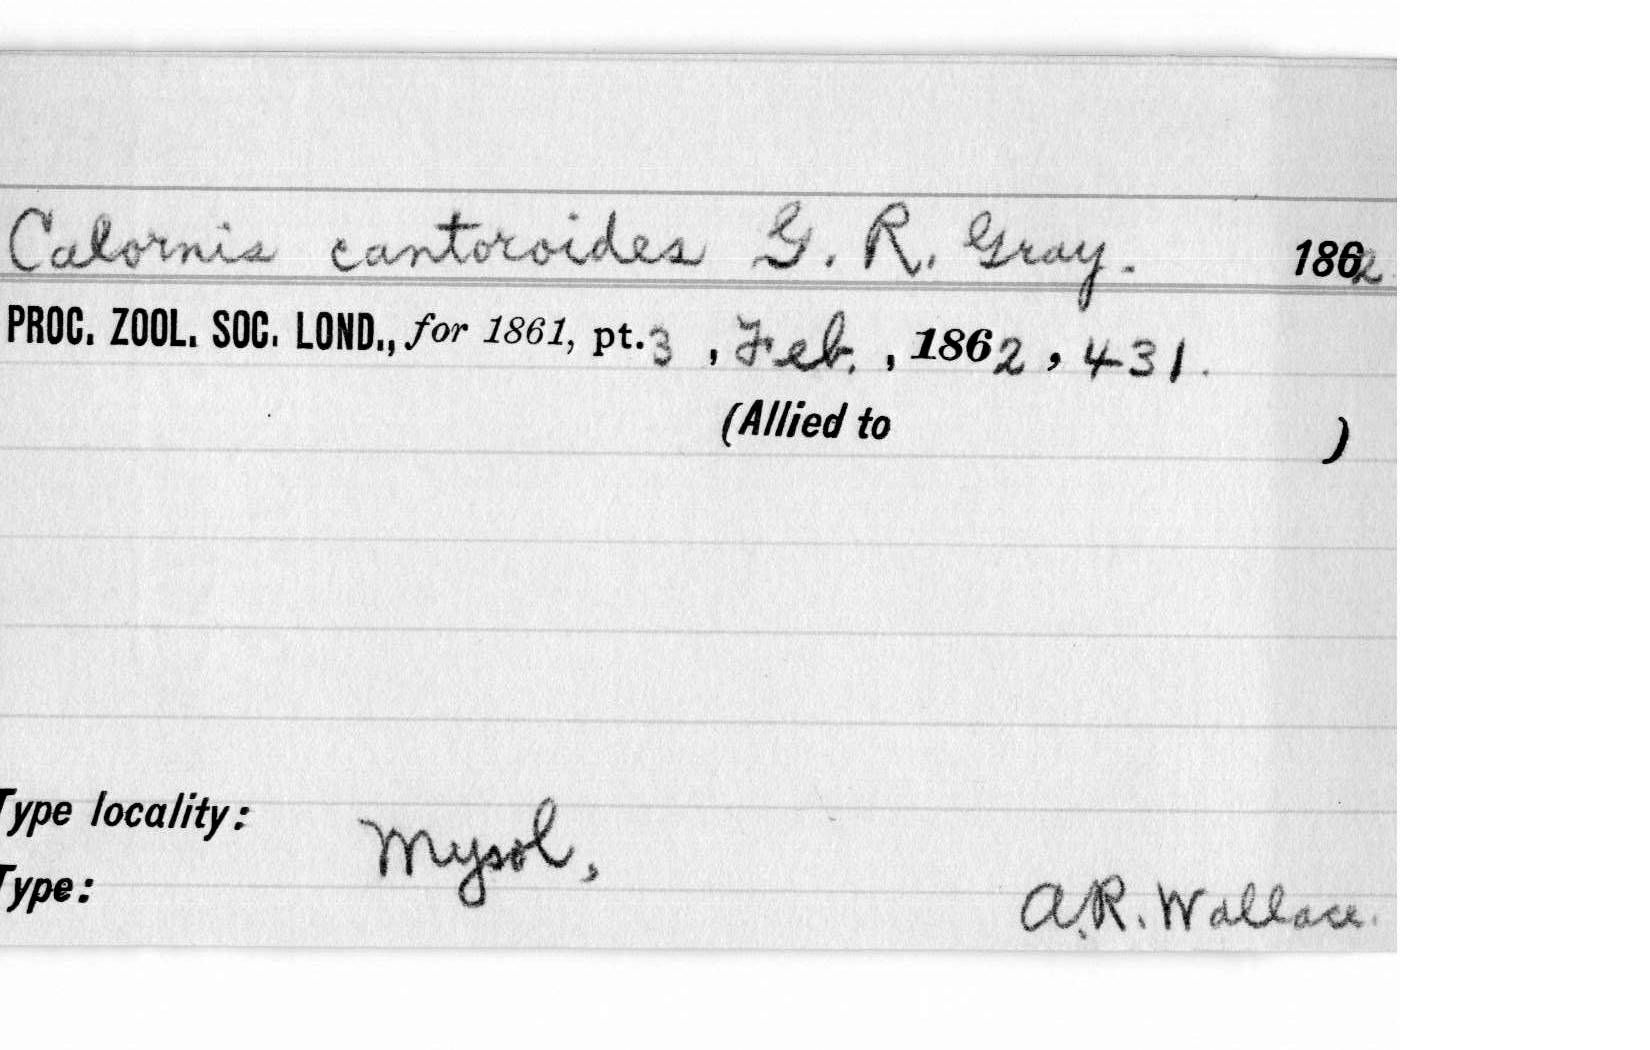 Calornis cantoroides G. R. Gray. 1862
PROC. ZOOL. SOC. LOND., for 1861, pt. 3, Feb., 1862, 431.
(Allied to )
Type locality: Mysol,
Type: A.R. Wallace.